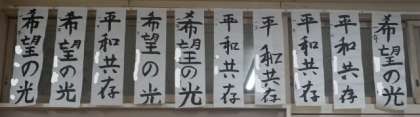 希望の光
希望の光
平和共存
希望の光
希望の光
平和共存
平和共存
平和共存
平和共存
希望の光